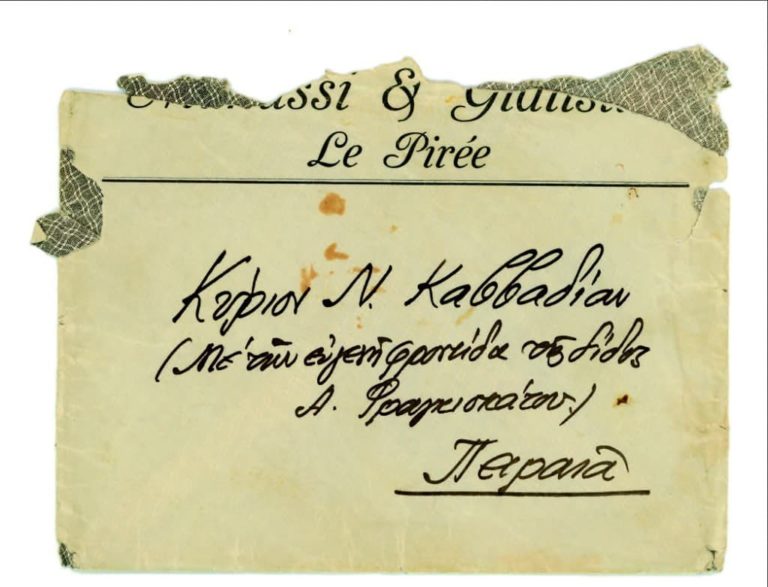 & 
Le Pirée
Κύριον Ν. Καββαδίαν
(Μὲ τὴν εὐγενῆ φροντίδα τῆς δίδος
Α. Φραγκισκάτου.)
Πειραιᾶ